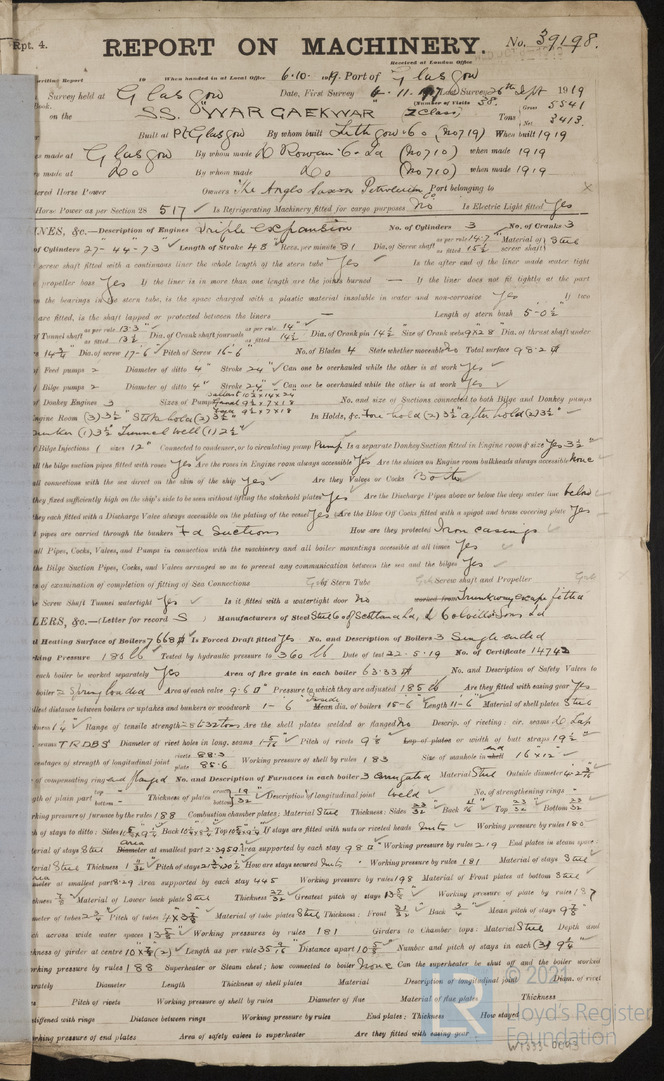 Rpt. 4.
REPORT ON MACHINERY. No. 39198.
Received at London Office
Writing Report 19 When handed in at Local Office 6.10.1919. Port of Glasgow
Survey held at Glasgow Date, First Survey 6.11.17 Last Survey 26th Sept 1919
Book. (Number of Visits 58.)
on the SS. "WAR GAEKWAR" (Z Class) Tons Gross 5541 Net 3413.
Built at Pt Glasgow By whom built Lithgow & Co (No 719) When built 1919
es made at Glasgow By whom made D Rowan & Co Ld (No 710) when made 1919
s made at Do By whom made Do (No 710) when made 1919
tered Horse Power Owners The Anglo Saxon Petroleum Port belonging to
Horse Power as per Section 28 517 Is Refrigerating Machinery fitted for cargo purposes No Is Electric Light fitted Yes
INES, &c.—Description of Engines Triple expansion No. of Cylinders 3 No. of Cranks 3
of Cylinders 27"-44"-73" Length of Stroke 48" Revs. per minute 81 Dia. of Screw shaft as per rule 14.7" as fitted 15 1/4" Material of screw shaft Steel
screw shaft fitted with a continuous liner the whole length of the stern tube Yes Is the after end of the liner made water tight
propeller boss Yes If the liner is in more than one length are the joints burned — If the liner does not fit tightly at the part
n the bearings in the stern tube, is the space charged with a plastic material insoluble in water and non-corrosive Yes If two
are fitted, is the shaft lapped or protected between the liners — Length of stern bush 5-0 1/2"
f Tunnel shaft as per rule 13.3" as fitted 13 1/2" Dia. of Crank shaft journals as per rule 14" as fitted 14 1/2" Dia. of Crank pin 14 1/2" Size of Crank webs 9 x 28" Dia. of thrust shaft under
14 3/4" Dia. of screw 17-6" Pitch of Screw 16-6" No. of Blades 4 State whether moveable No Total surface 98.2
of Feed pumps 2 Diameter of ditto 4" Stroke 24" Can one be overhauled while the other is at work Yes
of Bilge pumps 2 Diameter of ditto 4" Stroke 24" Can one be overhauled while the other is at work Yes
of Donkey Engines 3 Sizes of Pumps Ballast 10 1/2 x 14 x 24 9 1/2 x 7 x 18 9 1/2 x 7 x 18 No. and size of Suctions connected to both Bilge and Donkey pumps
Engine Room (3) 3 1/2" Stokehold (2) 3 1/2" In Holds, &c. Fore hold (2) 3 1/2" after hold (2) 3 1/2"
(1) 3 1/2" Tunnel well (1) 2 1/2"
f Bilge Injections 1 sizes 12" Connected to condenser, or to circulating pump Pump Is a separate Donkey Suction fitted in Engine room & size Yes 3 1/2"
all the bilge suction pipes fitted with roses Yes Are the roses in Engine room always accessible Yes Are the sluices on Engine room bulkheads always accessible None
all connections with the sea direct on the skin of the ship Yes Are they Valves or Cocks Both
they fixed sufficiently high on the ship's side to be seen without lifting the stokehold plates Yes Are the Discharge Pipes above or below the deep water line below
they each fitted with a Discharge Valve always accessible on the plating of the vessel Yes Are the Blow Off Cocks fitted with a spigot and brass covering plate Yes
t pipes are carried through the bunkers Fd Suctions How are they protected Iron casings
all Pipes, Cocks, Valves, and Pumps in connection with the machinery and all boiler mountings accessible at all times Yes
the Bilge Suction Pipes, Cocks, and Valves arranged so as to prevent any communication between the sea and the bilges Yes
es of examination of completion of fitting of Sea Connections Stern Tube Screw shaft and Propeller
he Screw Shaft Tunnel watertight Yes Is it fitted with a watertight door No worked from Trunkway escape fitted
LERS, &c.—(Letter for record S) Manufacturers of Steel Steel Co of Scotland Ld, D Colville & Sons Ld
al Heating Surface of Boilers 7668 Is Forced Draft fitted Yes No. and Description of Boilers 3 Single ended
rking Pressure 180 lb Tested by hydraulic pressure to 360 lb Date of test 22.5.19 No. of Certificate 14742
each boiler be worked separately Yes Area of fire grate in each boiler 63.33 No. and Description of Safety Valves to
boiler 2 Spring loaded Area of each valve 9.6 Pressure to which they are adjusted 185 lb Are they fitted with easing gear Yes
llest distance between boilers or uptakes and bunkers or woodwork 1-6" Inside Mean dia. of boilers 15-6" Length 11-6" Material of shell plates Steel
kness 1 1/4" Range of tensile strength 28 to 32 tons Are the shell plates welded or flanged No Descrip. of riveting: cir. seams D Lap
seams TRDBS Diameter of rivet holes in long. seams 1 5/16" Pitch of rivets 9 1/8" Lap of plates or width of butt straps 19 1/2"
centages of strength of longitudinal joint rivets 88.3 plate 85.6 Working pressure of shell by rules 183 Size of manhole in shell end 16" x 12"
of compensating ring end flanged No. and Description of Furnaces in each boiler 3 corrugated Material Steel Outside diameter
gth of plain part top bottom Thickness of plates crown bottom 19/32" Description of longitudinal joint weld No. of strengthening rings -
rking pressure of furnace by the rules 188 Combustion chamber plates: Material Steel Thickness: Sides 23/32" Back 11/16" Top 23/32" Bottom
ch of stays to ditto: Sides Back Top If stays are fitted with nuts or riveted heads Nuts Working pressure by rules 180
terial of stays Steel area Diameter at smallest part Area supported by each stay Working pressure by rules 219 End plates in steam space:
terial Steel Thickness Pitch of stays How are stays secured Nuts Working pressure by rules 181 Material of stays Steel
area ameter at smallest part 8.29 Area supported by each stay 445 Working pressure by rules 198 Material of Front plates at bottom Steel
ckness Material of Lower back plate Steel Thickness Greatest pitch of stays Working pressure of plate by rules 187
meter of tubes 2 3/4" Pitch of tubes Material of tube plates Steel Thickness: Front Back 3/4" Mean pitch of stays 9 7/8"
ch across wide water spaces Working pressures by rules 181 Girders to Chamber tops: Material Steel Depth and
ckness of girder at centre Length as per rule Distance apart Number and pitch of stays in each (3) 9 1/2"
rking pressure by rules 188 Superheater or Steam chest; how connected to boiler None Can the superheater be shut off and the boiler worked
rately Diameter Length Thickness of shell plates Material Description of longitudinal joint Diam. of rivet
Pitch of rivets Working pressure of shell by rules Diameter of flue Material of flue plates Thickness
stiffened with rings Distance between rings Working pressure by rules End plates: Thickness How stayed
rking pressure of end plates Area of safety valves to superheater Are they fitted with easing gear
LR
© 2021
Lloyd's Register
Foundation
W1333-0093